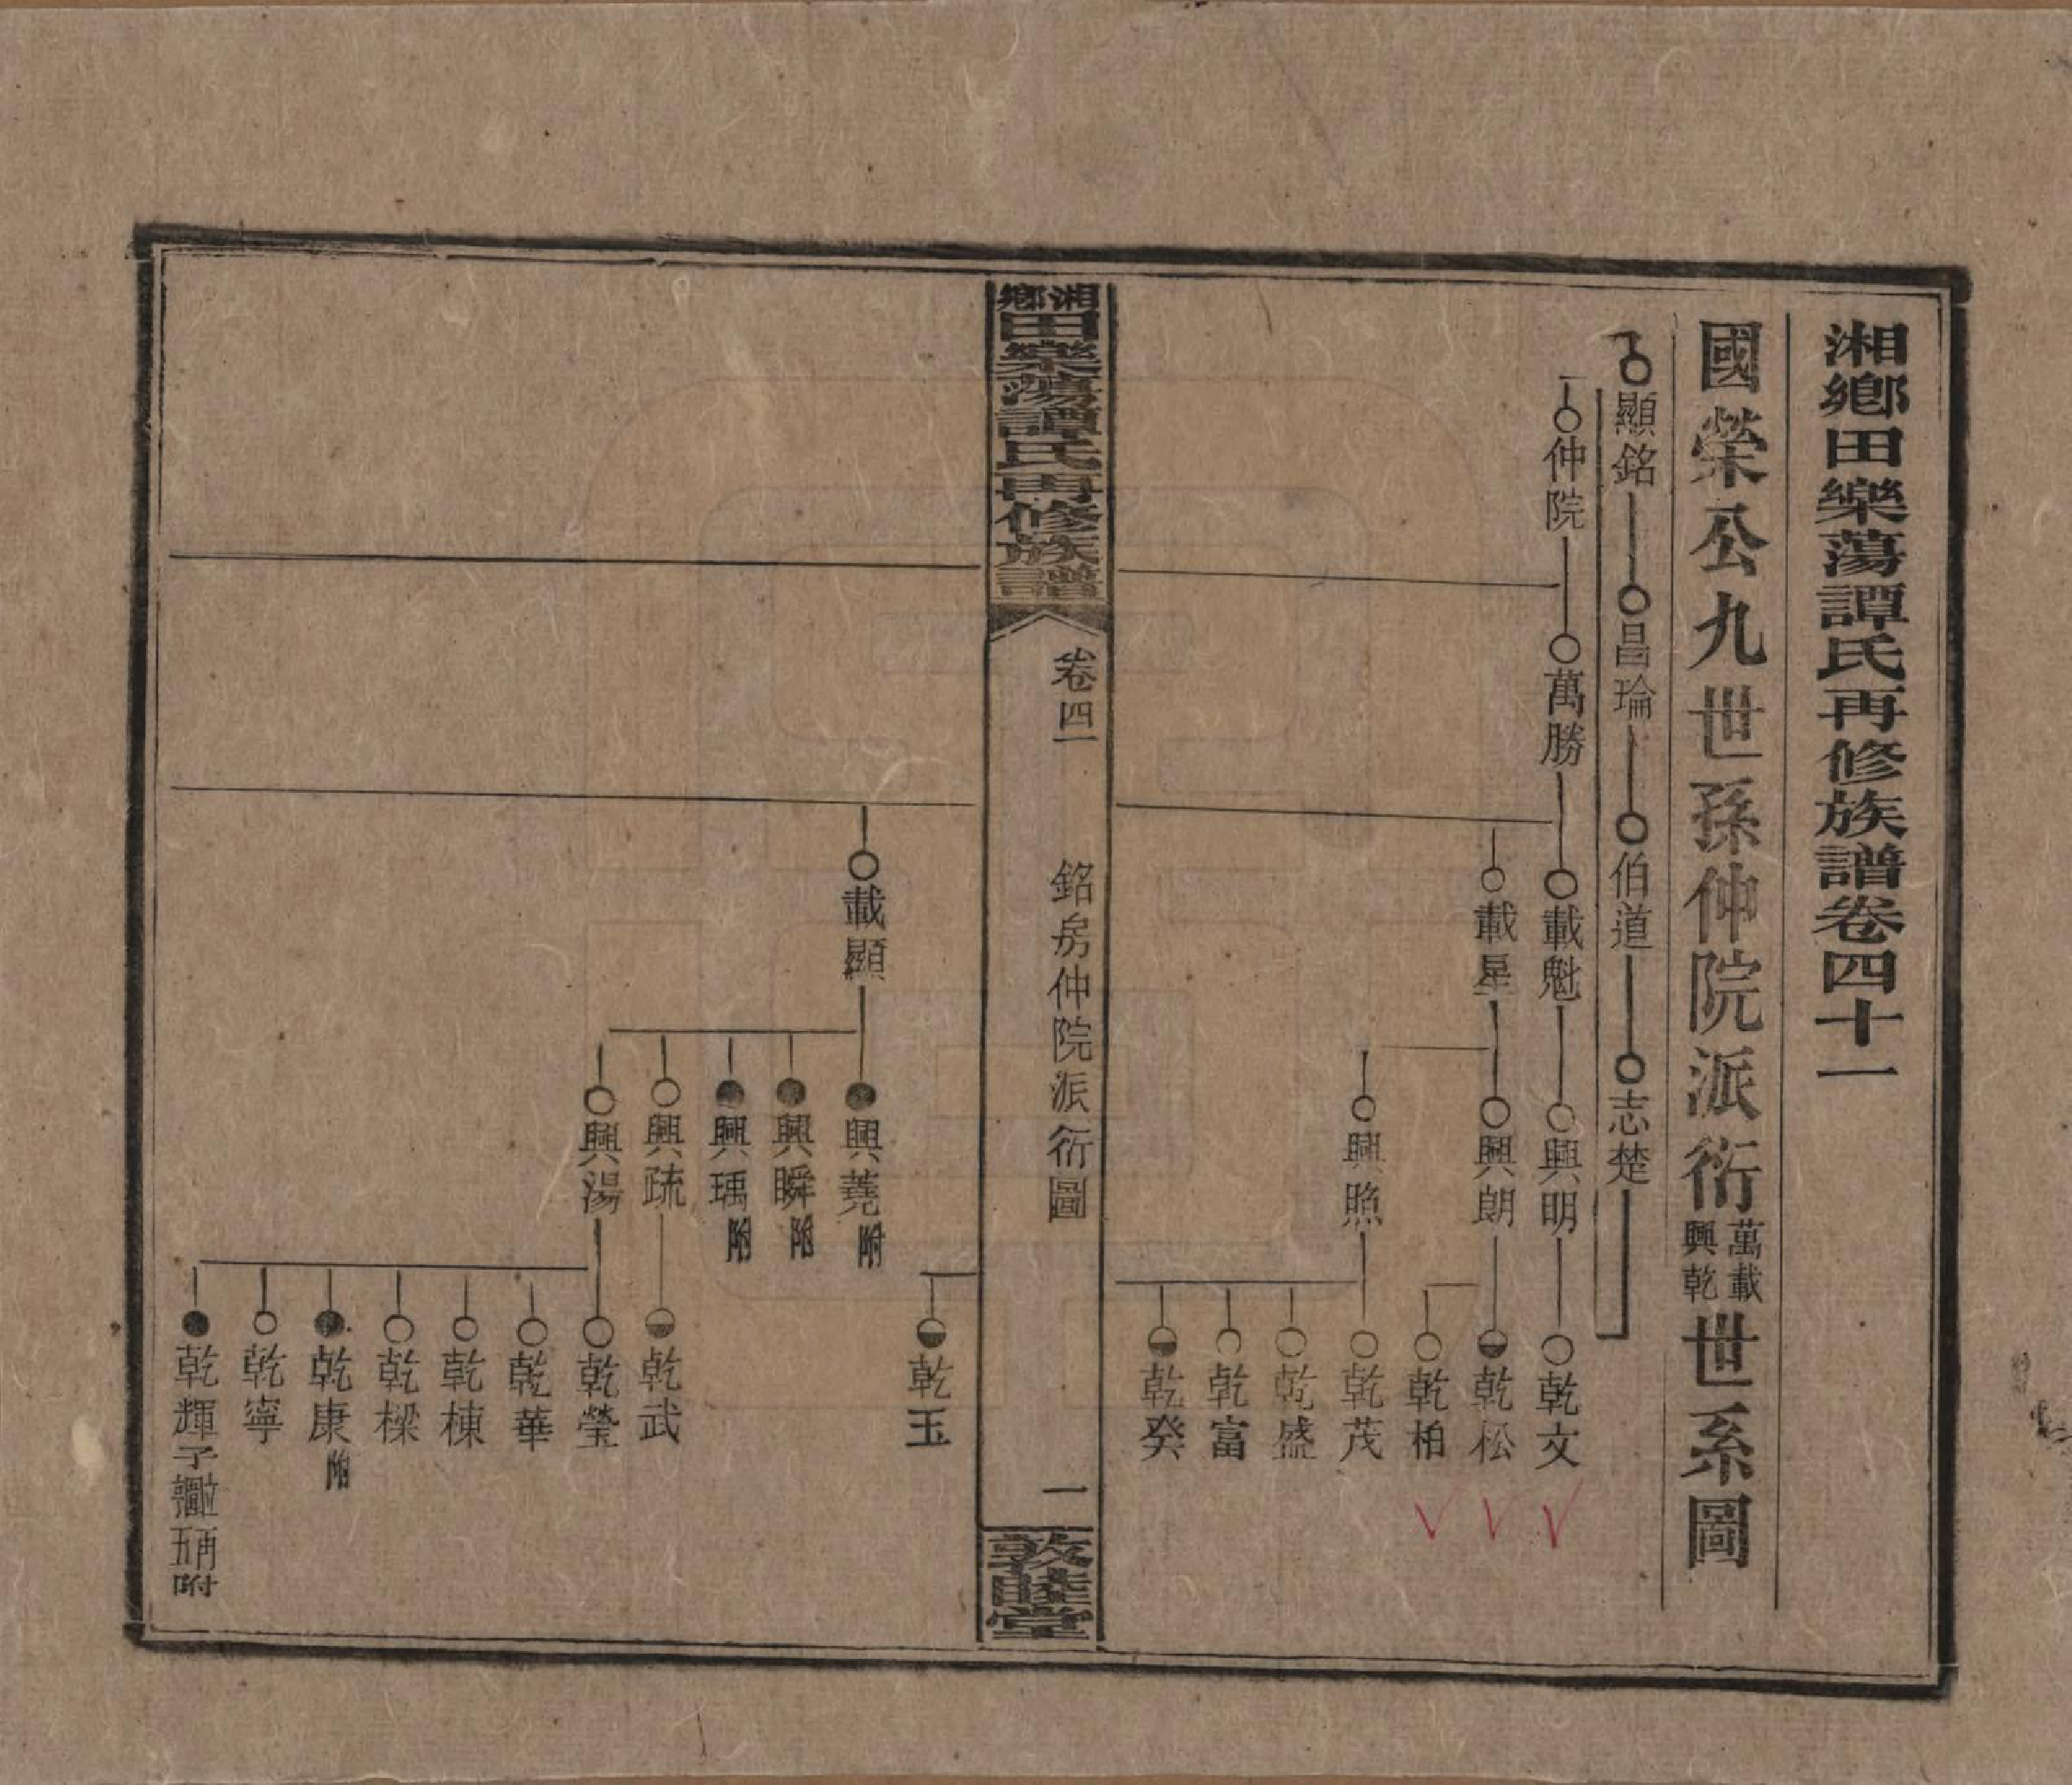 湘鄉田樂蕩譚氏再修族譜卷四十一
國榮公九世孫仲院派衍萬載興乾世系圖
顯銘
昌瑜
伯道
志楚
仲院
萬勝
載魁
興明
乾文
載星
興朗
乾松
乾柏
興照
乾茂
乾盛
乾富
乾癸
湘鄉田樂蕩譚氏再修族譜
卷四一
銘房仲院派衍圖
一
敦睦堂
乾玉
載顯
興蕘附
興瞬附
興瑀附
興疏
乾武
興湯
乾瑩
乾華
乾棟
乾樑
乾康附
乾寧
乾輝子
五再附